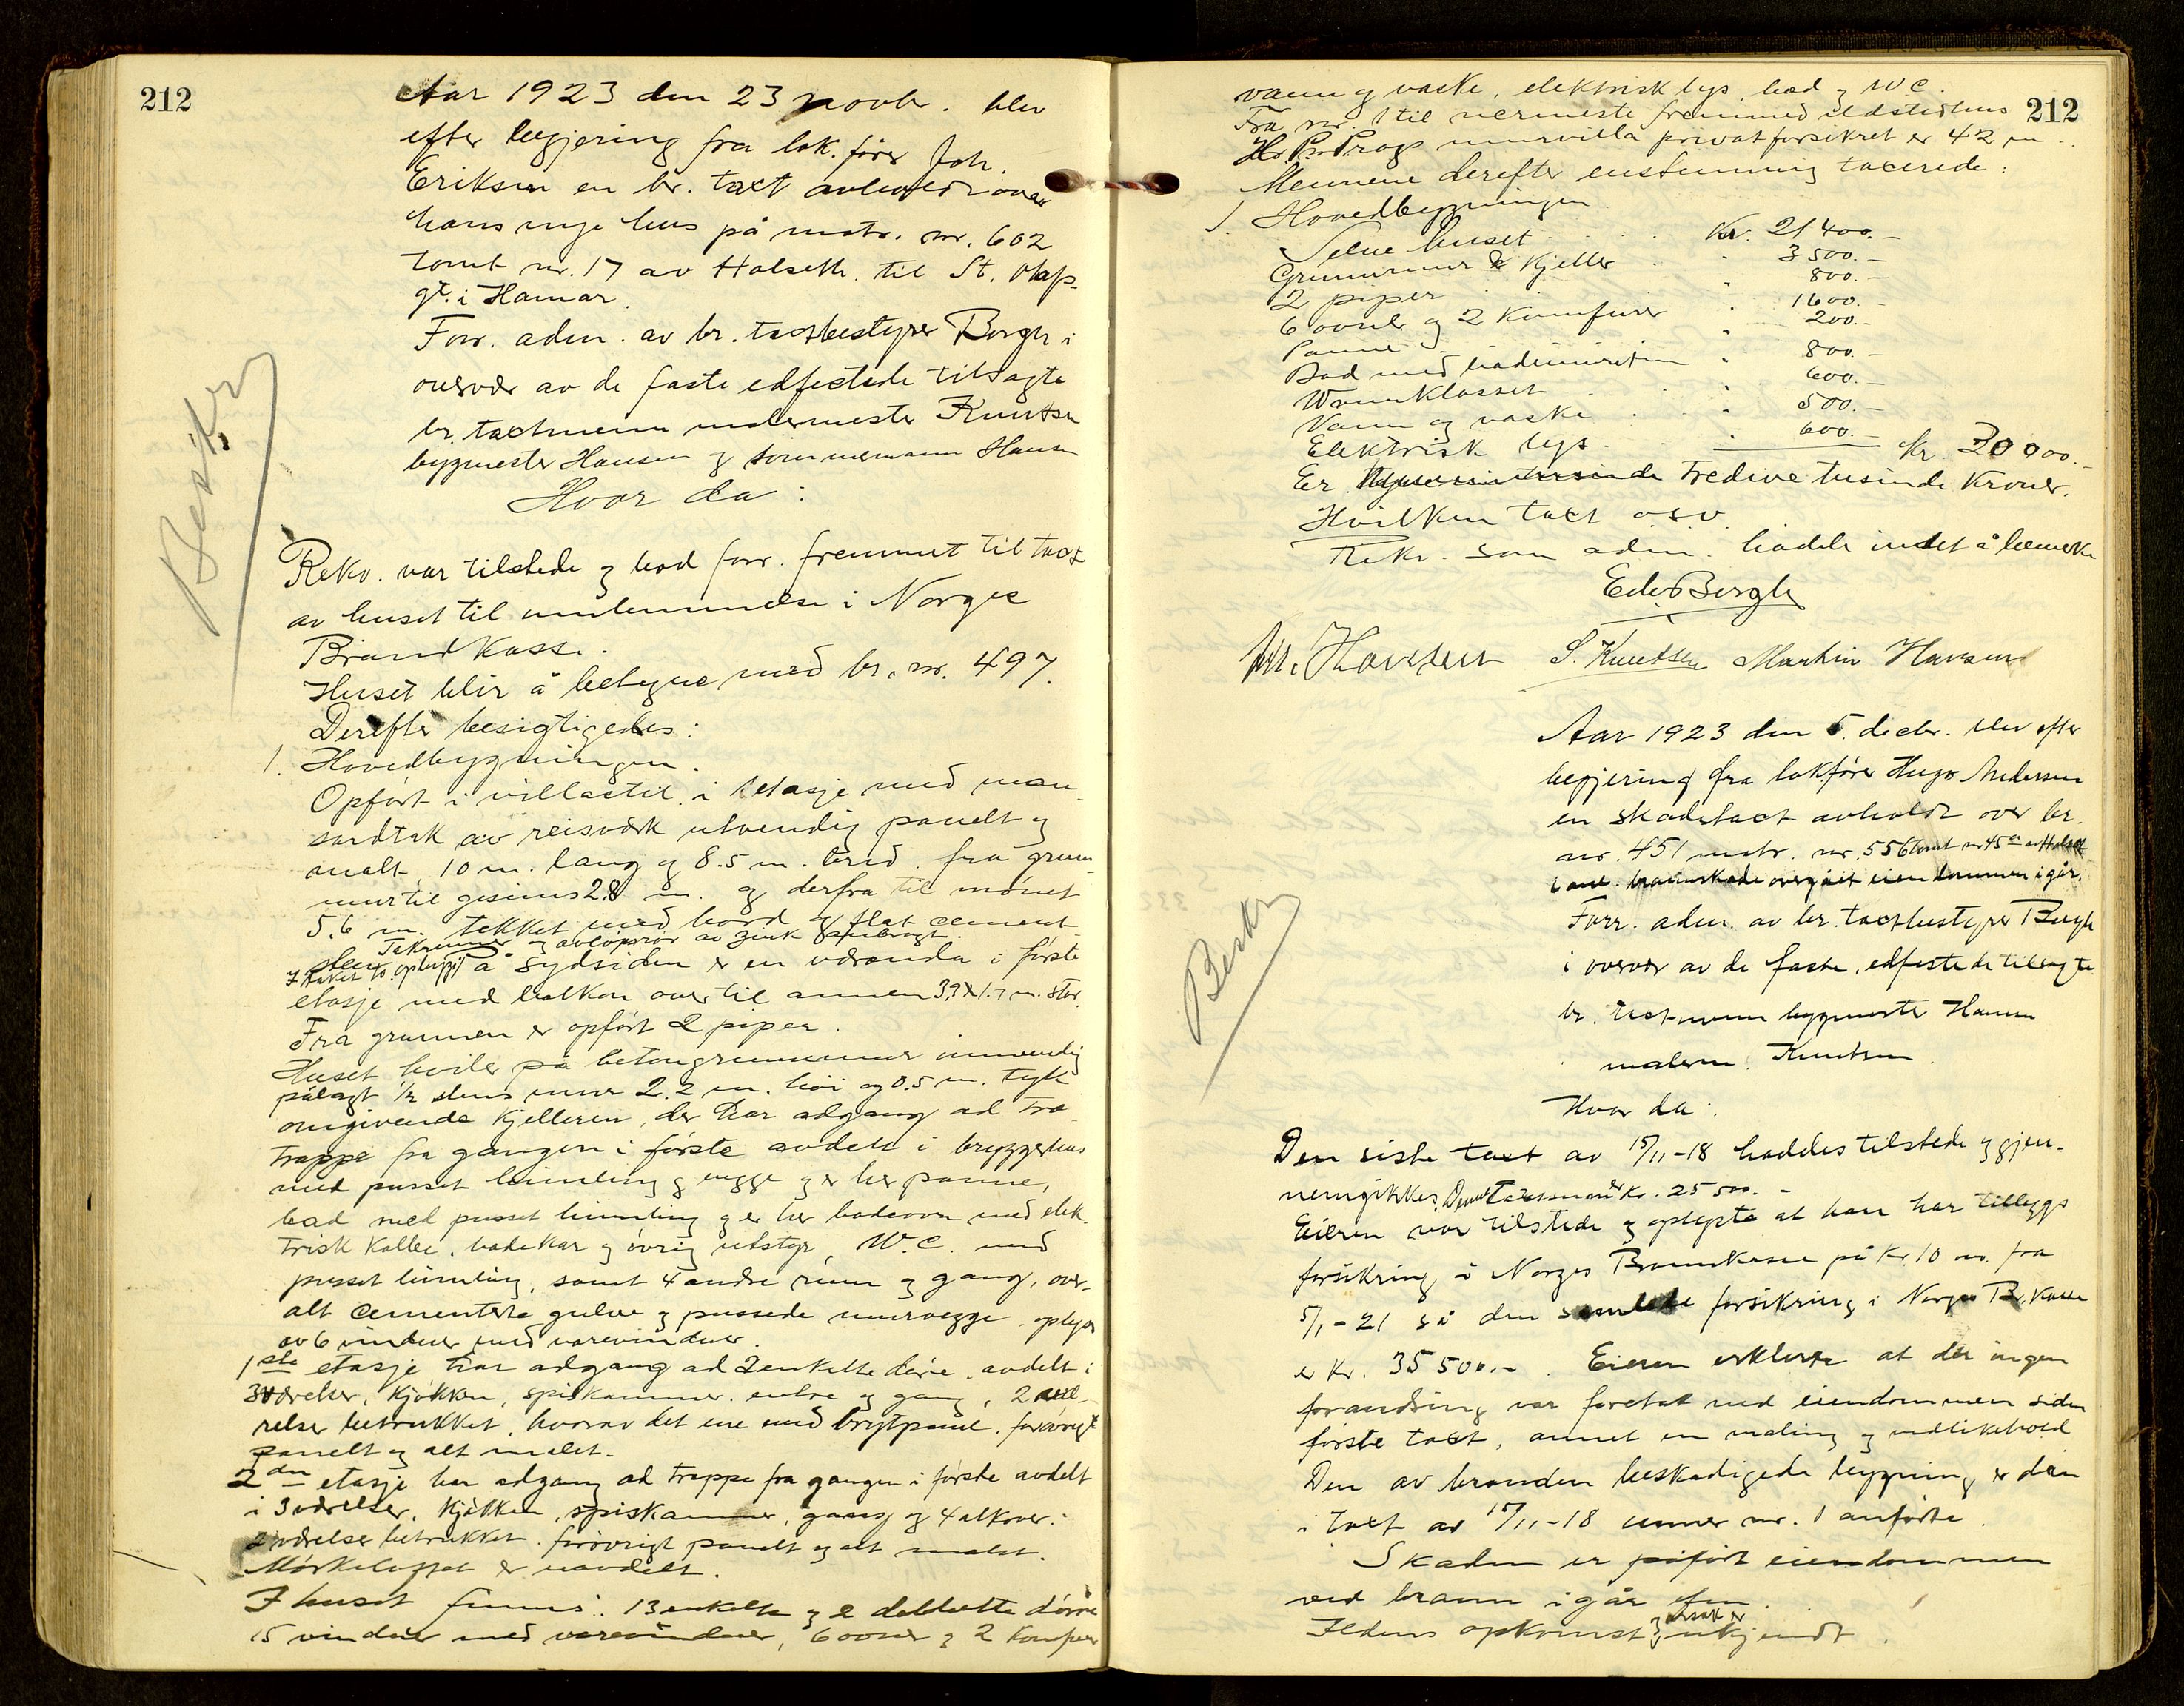 212
Aar 1923 den 23 novbr. blev
efter begjering fra lok. fører Joh.
Eriksen en br. taxt avholdt over
hans nye hus på matr. nr. 602
tomt nr. 17 av Halseth. til St. Olafs-
gt. i Hamar.
Forr. adm. av br. taxtbestyrer Bergh i
overvær av de faste edfestede tilsagte
br. taxtmenn malermester Knutsen
bygmester Hansen og tømmermann Hansen
Hvor da:
Beskr
Rekv. var tilstede og bad forr. fremmet til taxt
av huset til innlemmelse i Norges
Brandkasse.
Huset blir å betegne med br. nr. 497.
Derefter besigtigedes:
1. Hovedbygningen.
Opført i villastil i 1 etasje med man-
sardtak av reisverk utvendig panelt og
malt, 10 m. lang og 8.5 m. bred. fra grunn-
mur til gesims 2.8 m. og derfra til mønet
5.6 m. tekket med bord og flat cement-
sten Takrenner og avløpsrør av zink anbragt.
I taket to opbygg På sydsiden er en veranda i første
etasje med balkon over til annen 3.9 x 1.7 m. stor.
Fra grunnen er opført 2 piper.
Huset hviler på betongrunnmur innvendig
pålagt 1/2 stens mur 2.2 m. høi og 0.5 m. tyk
omgivende kjelleren, der har adgang ad tre-
trappe fra gangen i første avdelt i bryggerhus
med pusset himling og vegge og er her panne,
bad med pusset himling og er her badeovn med elek-
trisk kolbe, badekar og øvrig utstyr, W.C. med
pusset himling, samt 4 andre rum og gang, over-
alt cementerte gulve og pussede murvegge, oplyst
av 6 vinduer med varevinduer.
1ste etasje har adgang ad 2 enkelte døre. avdelt i
3 værelser, kjøkken, spiskammer. entre og gang, 2 væ-
relser betrukket, hvorav det ene med brystpanel, forøvrigt
panelt og alt malet.
2den etasje har adgang ad trappe fra gangen i første avdelt
i 3 værelser, kjøkken, spiskammer, gang og 4 alkover.
2 værelser betrukket. forøvrigt panelt og alt malet.
Mørkeloftet er uavdelt.
I huset finnes: 13 enkelte og 2 dobbelte døre
15 vinduer med varevinduer, 6 ovner og 2 komfurer
212
vann og vaske, elektrisk lys, bad og W.C.
Fra nr. 1 til nermeste fremmed ildstedhus
murvilla privatforsikret er 42 m.
Mennene derefter enstemmig taxerede:
1. Hovedbygningen
Selve huset . . . . Kr. 21400.-
Grunnmur & Kjeller . . " 3500.-
2 piper . . " 800.-
6 ovner og 2 Komfurer " 1600.-
Panne . . " 200.-
Bad med badeinnretn " 800.-
Wannklosset . . " 600.-
Vann og vaske . . " 500.-
Elektrisk lys . . " 600.- Kr. 30000.-
Er tredive tusinde Kroner.
Hvilken taxt o.s.v.
Rekv. som adm. hadde intet å bemerke
Edv. Bergh
M. Hansen S. Knutsen Martin Hansen
Aar 1923 den 5. decbr. blev efter
begjering fra lokfører Hugo Andersen
en skadetaxt avholdt over br.
nr. 451 matr. nr. 556 tomt nr 45 av Halset
brannskade overgået eiendommen igår.
Forr. adm. av br. taxtbestyrer Bergh
i overvær av de faste, edfestede tilsagte
br. taxtmenn bygmester Hansen
malerm. Knutsen
Hvor da:
Beskr
Den siste taxt av 15/11-18 haddes tilstede og gjen-
nemgikkes. Denne taxtsum er Kr. 25500.-
Eieren var tilstede og oplyste at han har tilleggs
forsikring i Norges Brannkasse på Kr. 10 000 fra
5/1-21 så den samlede forsikring i Norges Br. Kasse
er Kr. 35500.- . Eieren erklerte at der ingen
forandring var foretat med eiendommen siden
første taxt, annet en maling og vedlikehold
Den av branden beskadigede bygning er den
i taxt av 15/11-18 under nr. 1 anførte.
Skaden er påført eiendommen
ved brann igår efm.
Ildens opkomst og årsak er ukjendt.